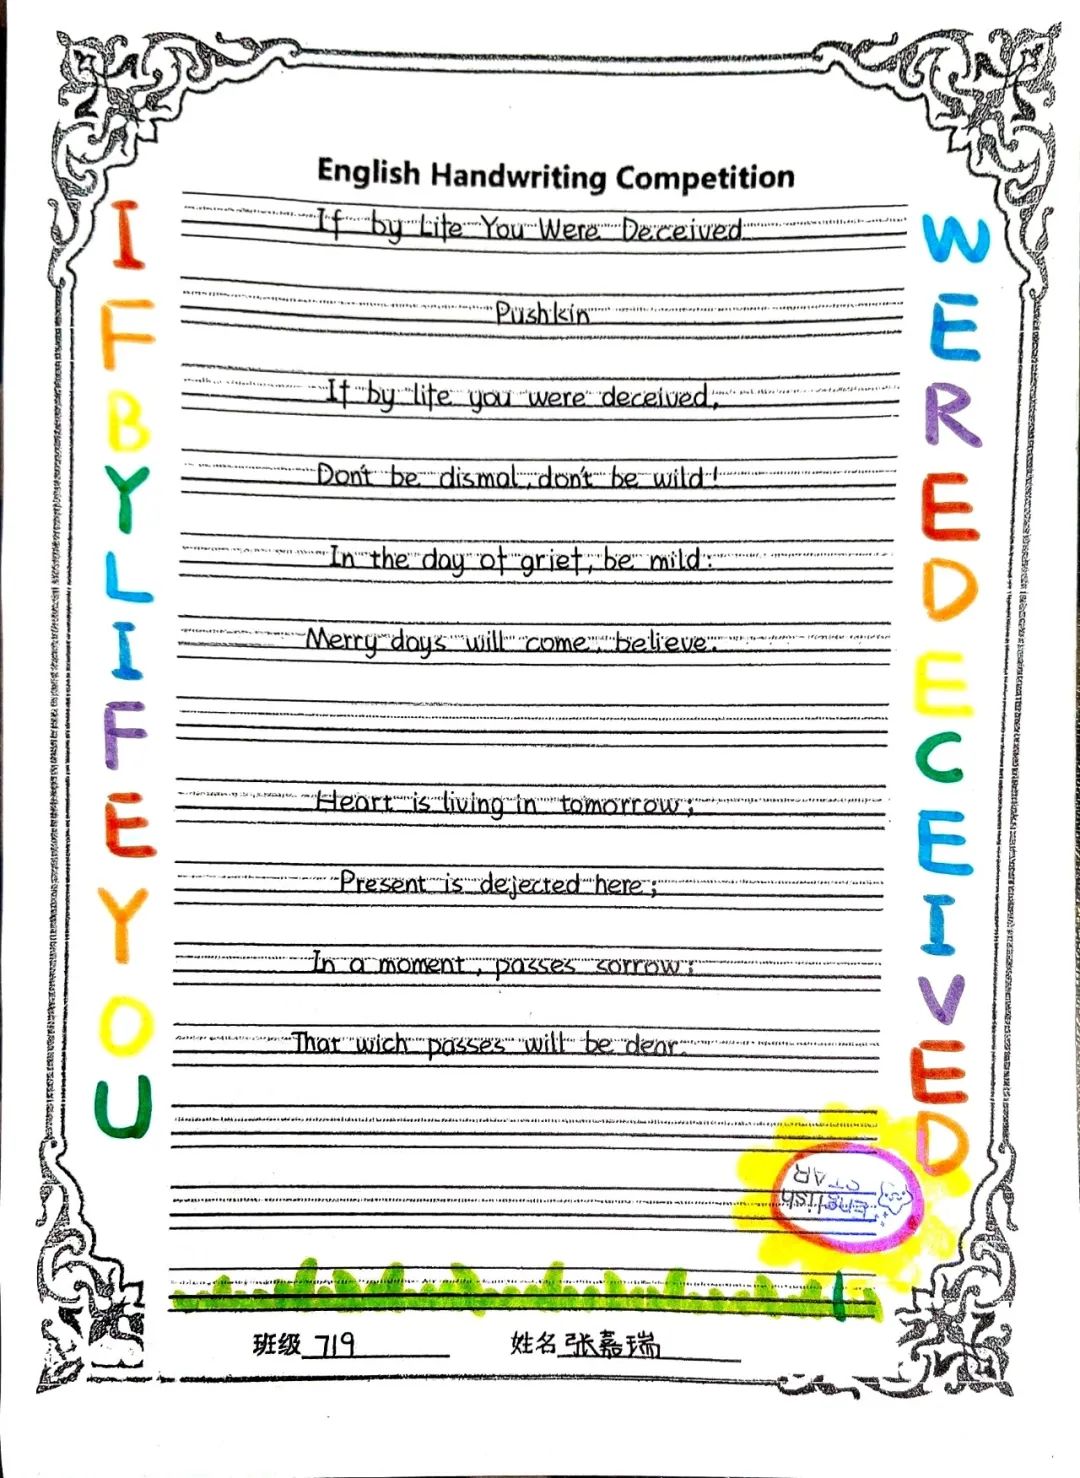 English Handwriting Competition
If by Life You Were Deceived
Pushkin
If by life you were deceived,
Don't be dismal, don't be wild!
In the day of grief, be mild:
Merry days will come, believe.
Heart is living in tomorrow;
Present is dejected here;
In a moment, passes sorrow;
That wich passes will be dear.
IF BY LIFE YOU
WERE DECEIVED
English
STAR
班级 719 姓名 张嘉瑞